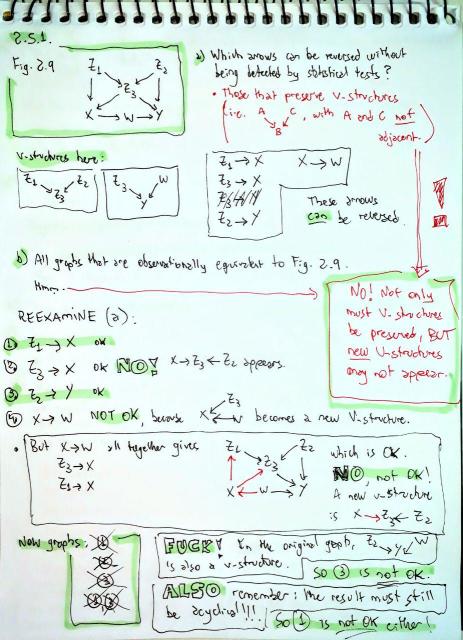 2.5.1.
Fig. 2.9
Z₁ Z₂
Z₃
X → W → Y
a) Which arrows can be reversed without
being detected by statistical tests?
• Those that preserve V-structures
(i.e. A C , with A and C not
B adjacent.)
V-structures here:
Z₁ Z₂
Z₃
Z₃ W
Y
Z₁ → X X → W
Z₃ → X
Z₂ → Y
These arrows
can be reversed.
b) All graphs that are observationally equivalent to Fig. 2.9.
Hmm...
NO! Not only
must V-structures
be preserved, BUT
new V-structures
may not appear.
REEXAMINE (a):
① Z₁ → X OK
② Z₃ → X OK NO! X → Z₃ ← Z₂ appears.
③ Z₂ → Y OK
④ X → W NOT OK, because Z₃
X ← W becomes a new V-structure.
• But X → W all together gives
Z₃ → X
Z₁ → X
Z₁ Z₂
Z₃
X W → Y
which is OK.
NO, not OK!
A new v-structure
is X → Z₃ ← Z₂
New graphs:
①
②
③
①③
FUCK! In the original graph, Z₂ → Y ← W
is also a v-structure.
So ③ is not OK.
ALSO remember: the result must still
be acyclical!!!!
So ① is not OK either!